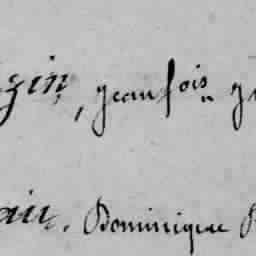 gin, jean fois
ain, Dominique